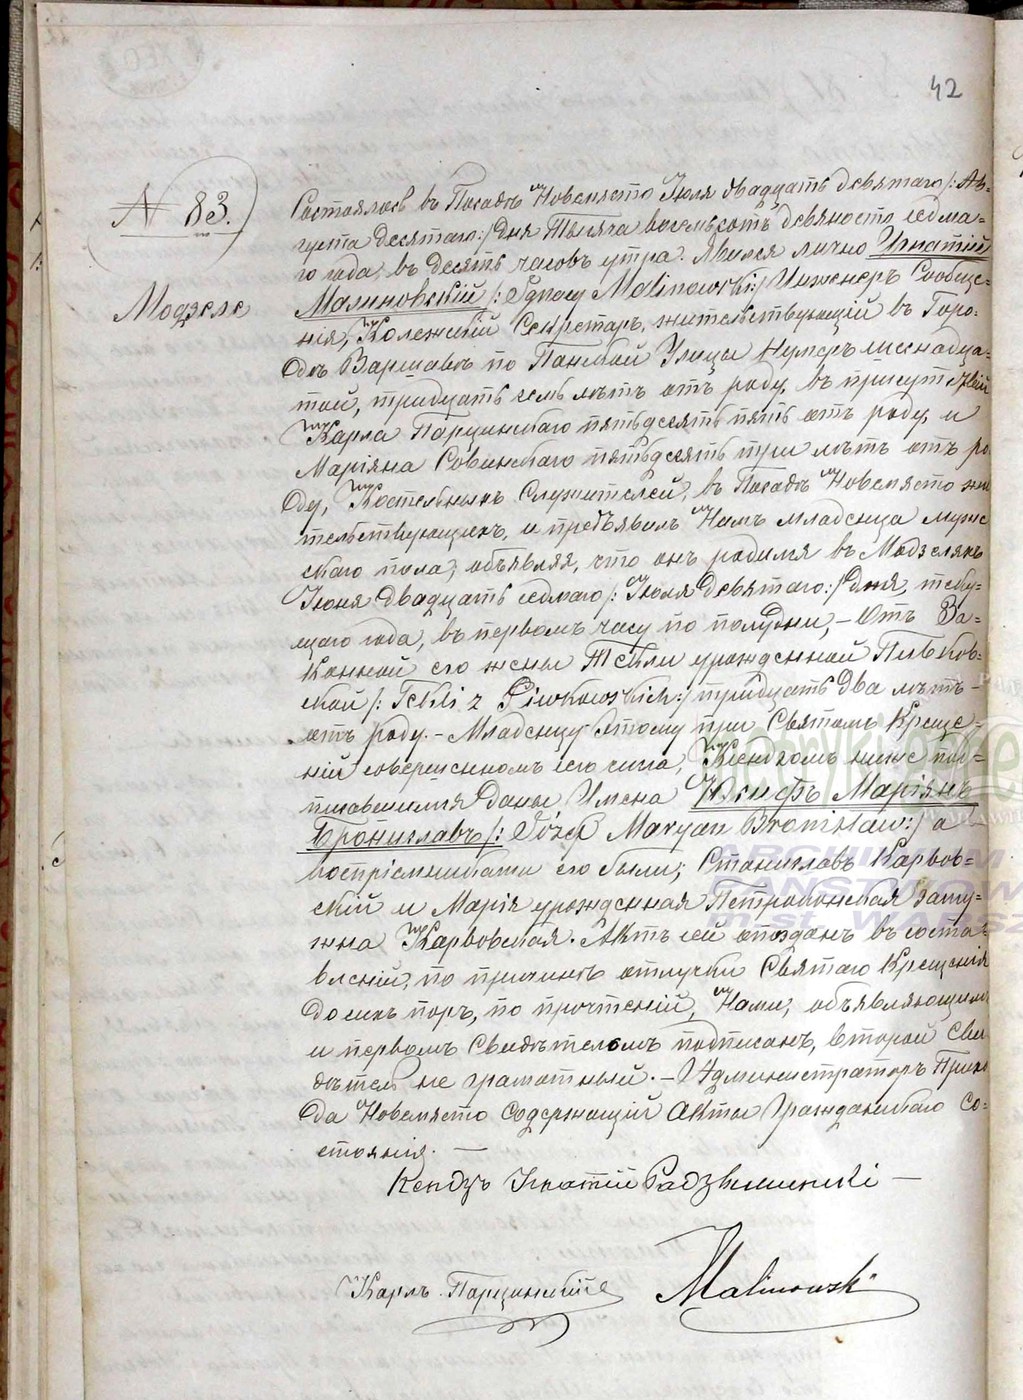 42
N 83.
Модзеле
Состоялось въ Посадѣ Новемясто Іюля двадцать девятаго /: Ав-
густа десятаго:/ дня Тысяча восемьсотъ девяносто седма-
го года, въ десять часовъ утра. Явился лично Игнатій
Малиновскій /: Ignacy Malinowski:/ Инженеръ Сообще-
нія, Колежскій Секретарь, жительствующій въ Горо-
дѣ Варшавѣ по Панской Улицы Нумеръ шеснадца-
той, тридцать семь лѣтъ отъ роду, въ присутствіи
Карла Парцинскаго пятьдесять пять отъ роду, и
Маріяна Совинскаго пятьдесять три лѣтъ отъ ро
ду, Костельныхъ Служителей, въ Посадѣ Новемясто жи
тельствующихъ, и предъявилъ Намъ младенца мужс
скаго пола, объявляя, что онъ родился въ Модзеляхъ
Іюня двадцать седмаго /: Іюля девятаго:/ дня, теку-
щаго года, въ первомъ часу по полудни, – Отъ За-
конной его жены Теклы урожденной Пивков-
ской /: Tekli z Piwkowskich:/ тридцать два лѣтъ –
отъ роду. – Младенцу этому при Святомъ Креще-
ніи совершенномъ сего числа, Ксендзомъ ниже под-
писавшимся даны Имена Іосифъ Маріянъ
Брониславъ /: Józef Maryan Bronisław:/ а
воспріемниками его были, Станиславъ Карвов-
скій и Марія урожденная Петроконская заму-
жна Карвовская. Актъ сей опозданъ въ соста-
вленіи, по причинѣ отлучки Святаго Крещенія
до сихъ поръ, по прочтеніи, Нами, объявляющимъ
и первомъ Свидѣтелемъ подписанъ, второй Сви
дѣтель не грамотный. – Администраторъ Прихо
да Новемясто Содержащій Акты Гражданскаго Со-
стоянія. —
Ксендзъ Игнатій Радзишевскі —
Карлъ Парцинскій Malinowski